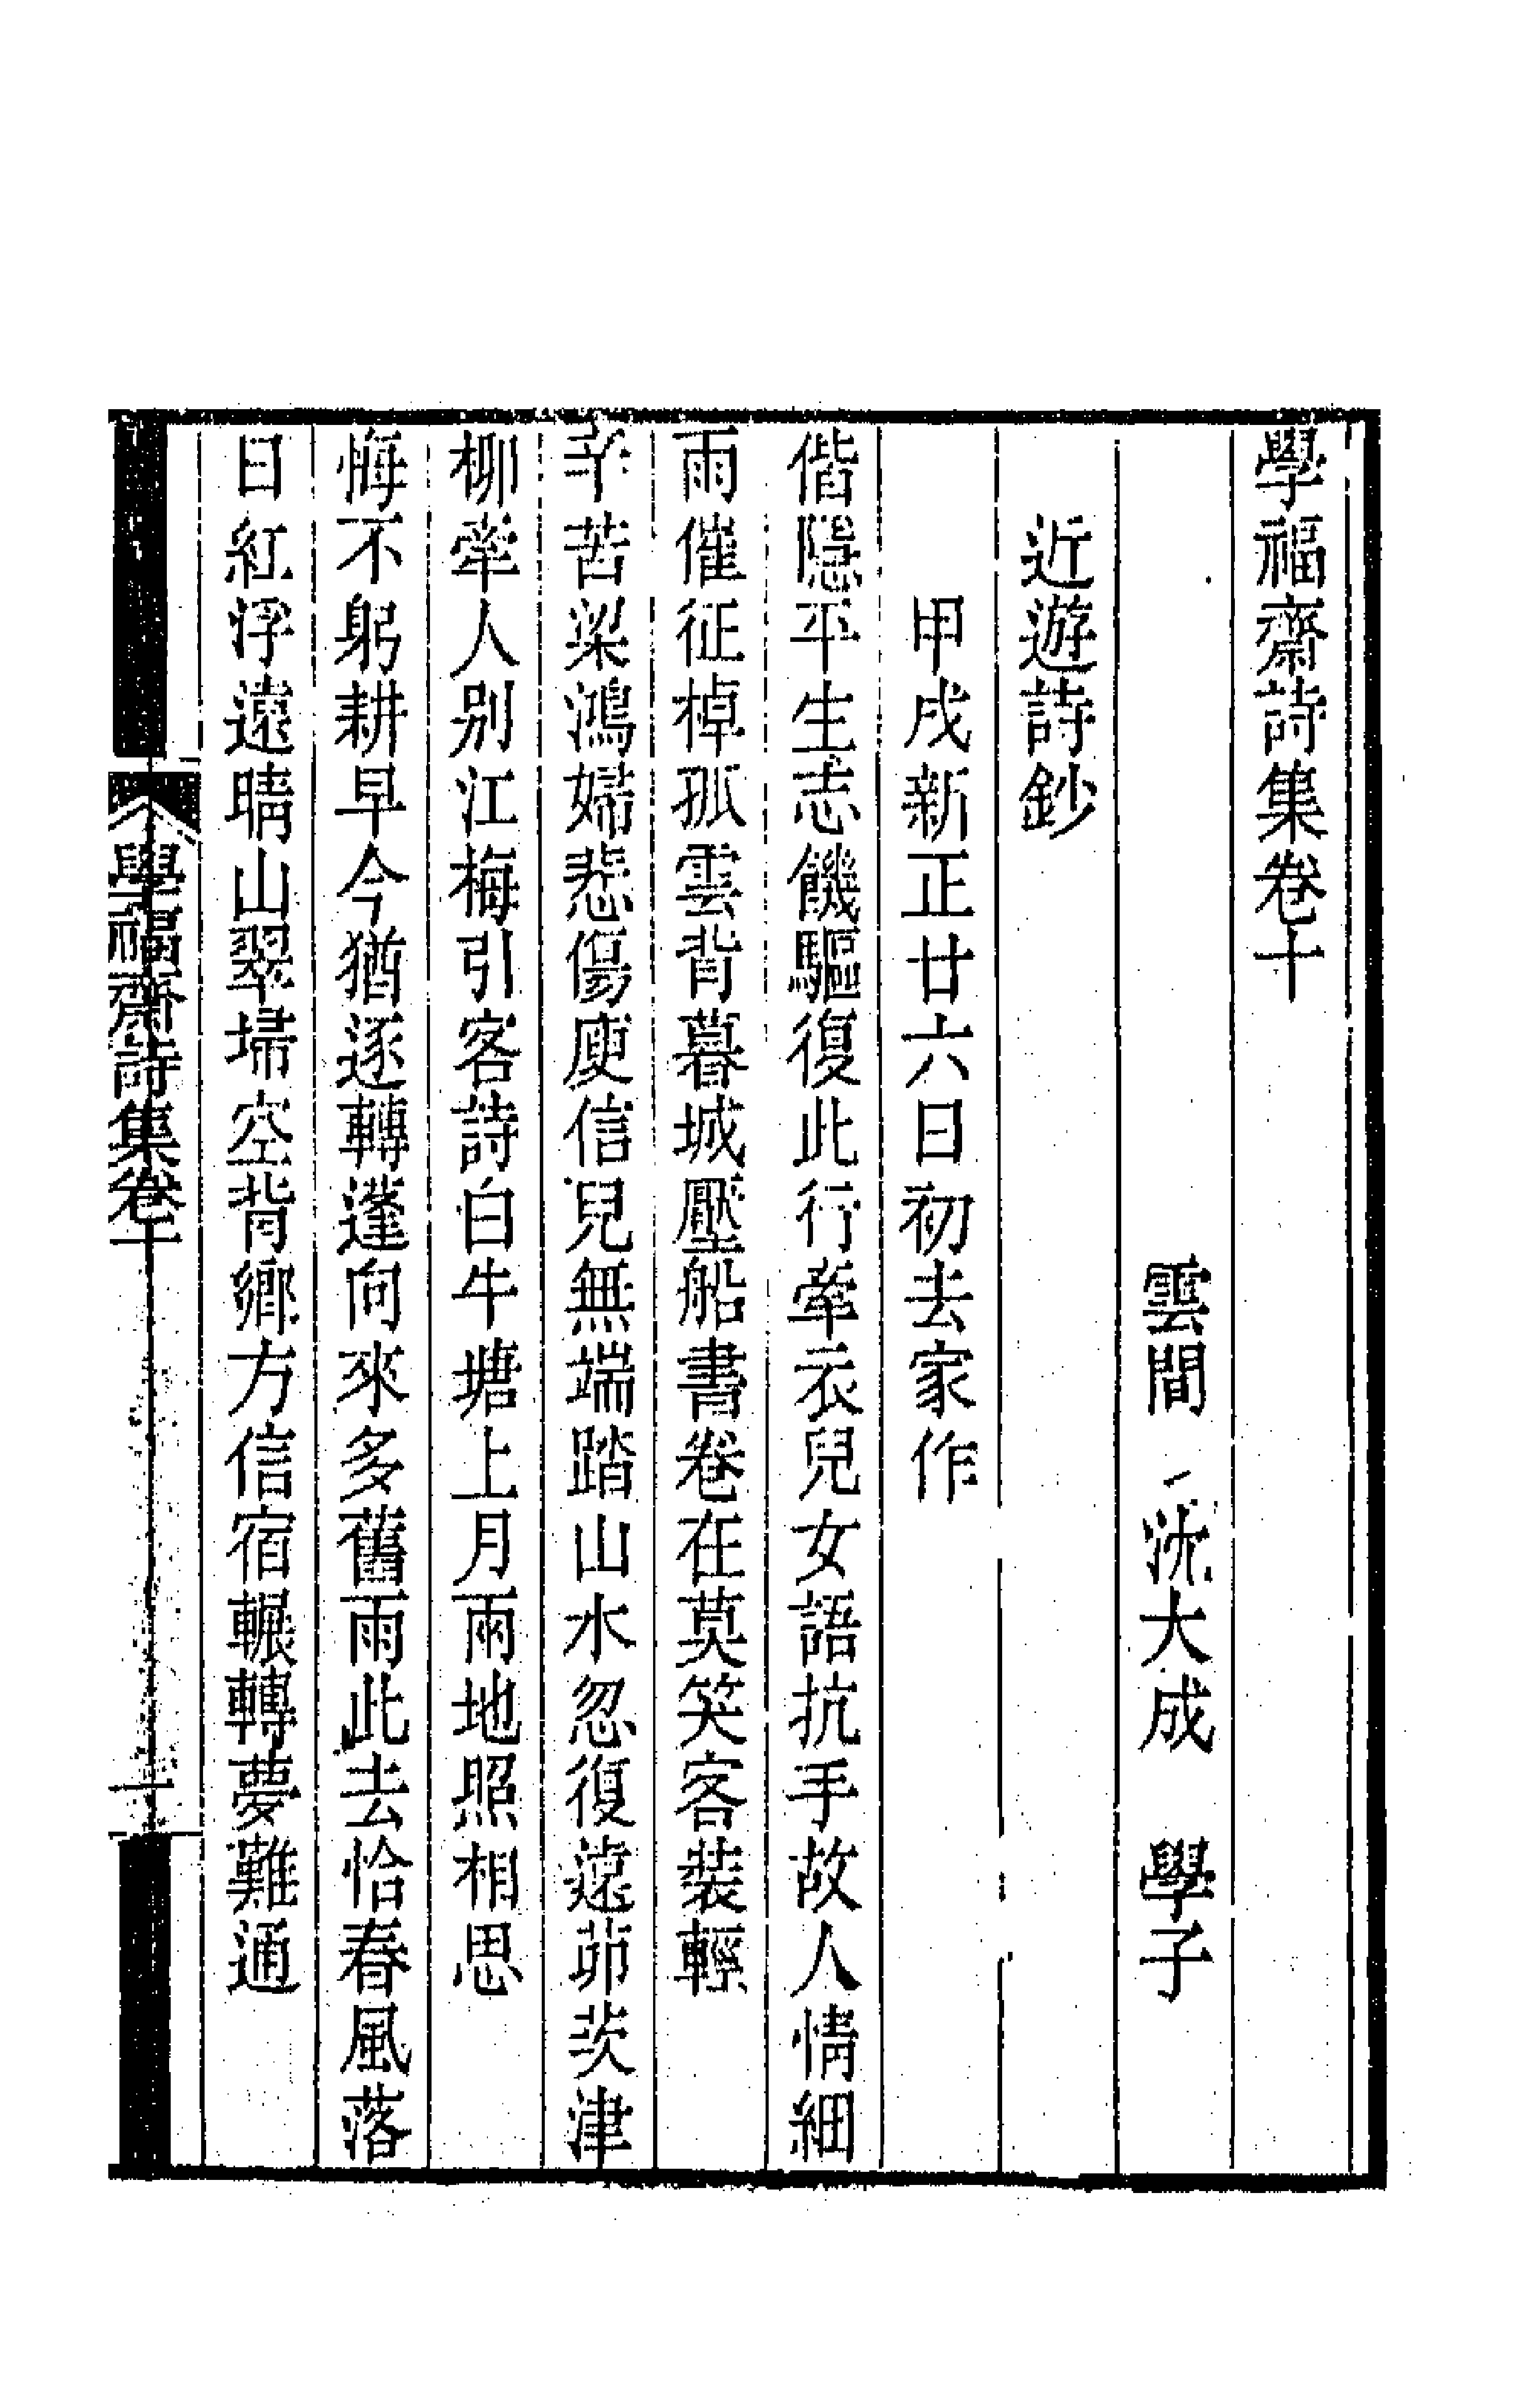 學福齋詩集卷十
雲間 沈大成 學子
近遊詩鈔
甲戌新正廿六日初去家作
偕隱平生志饑驅復此行牽衣兒女語抗手故人情細
雨催征棹孤雲背暮城壓船書卷在莫笑客裝輕
辛苦梁鴻婦悲傷庾信兒無端踏山水忽復遠茆茨津
柳牽人别江梅引客詩白牛塘上月兩地照相思
悔不躬耕早今猶逐轉蓬向來多舊雨此去恰春風落
日紅浮遠晴山翠埽空背鄉方信宿輾轉夢難通
學福齋詩集卷十
一